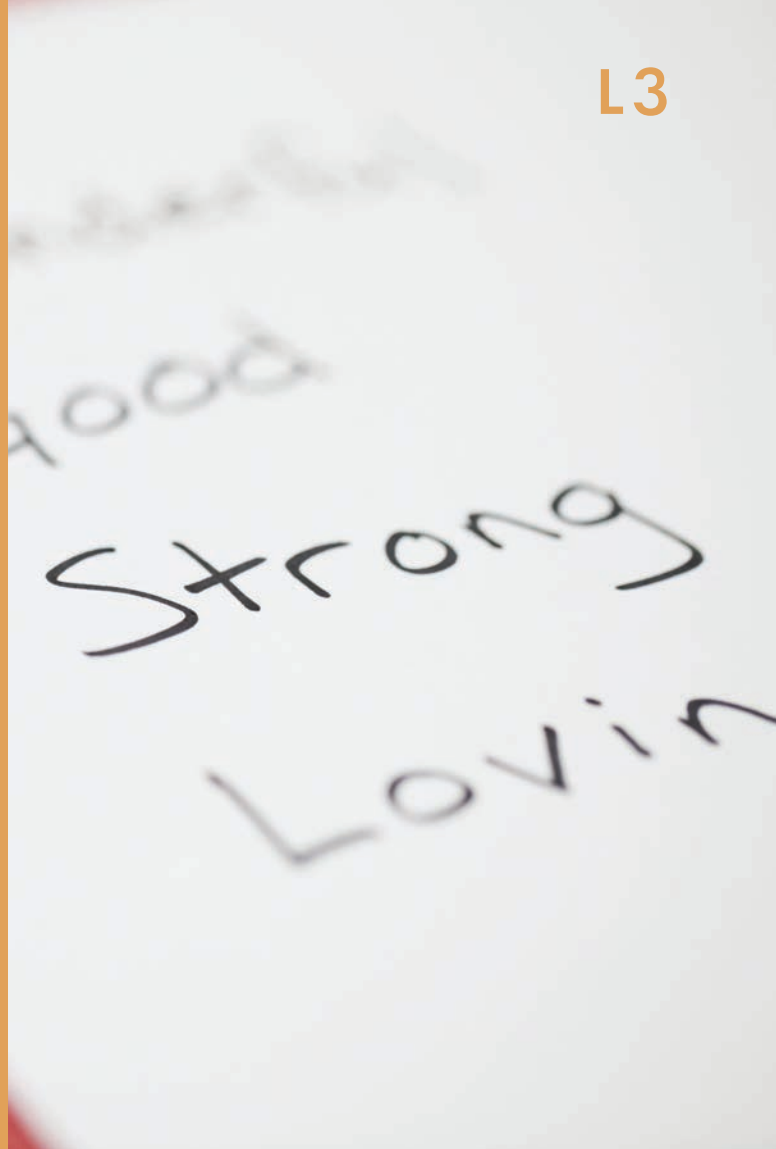 L3
good
Strong
Lovin